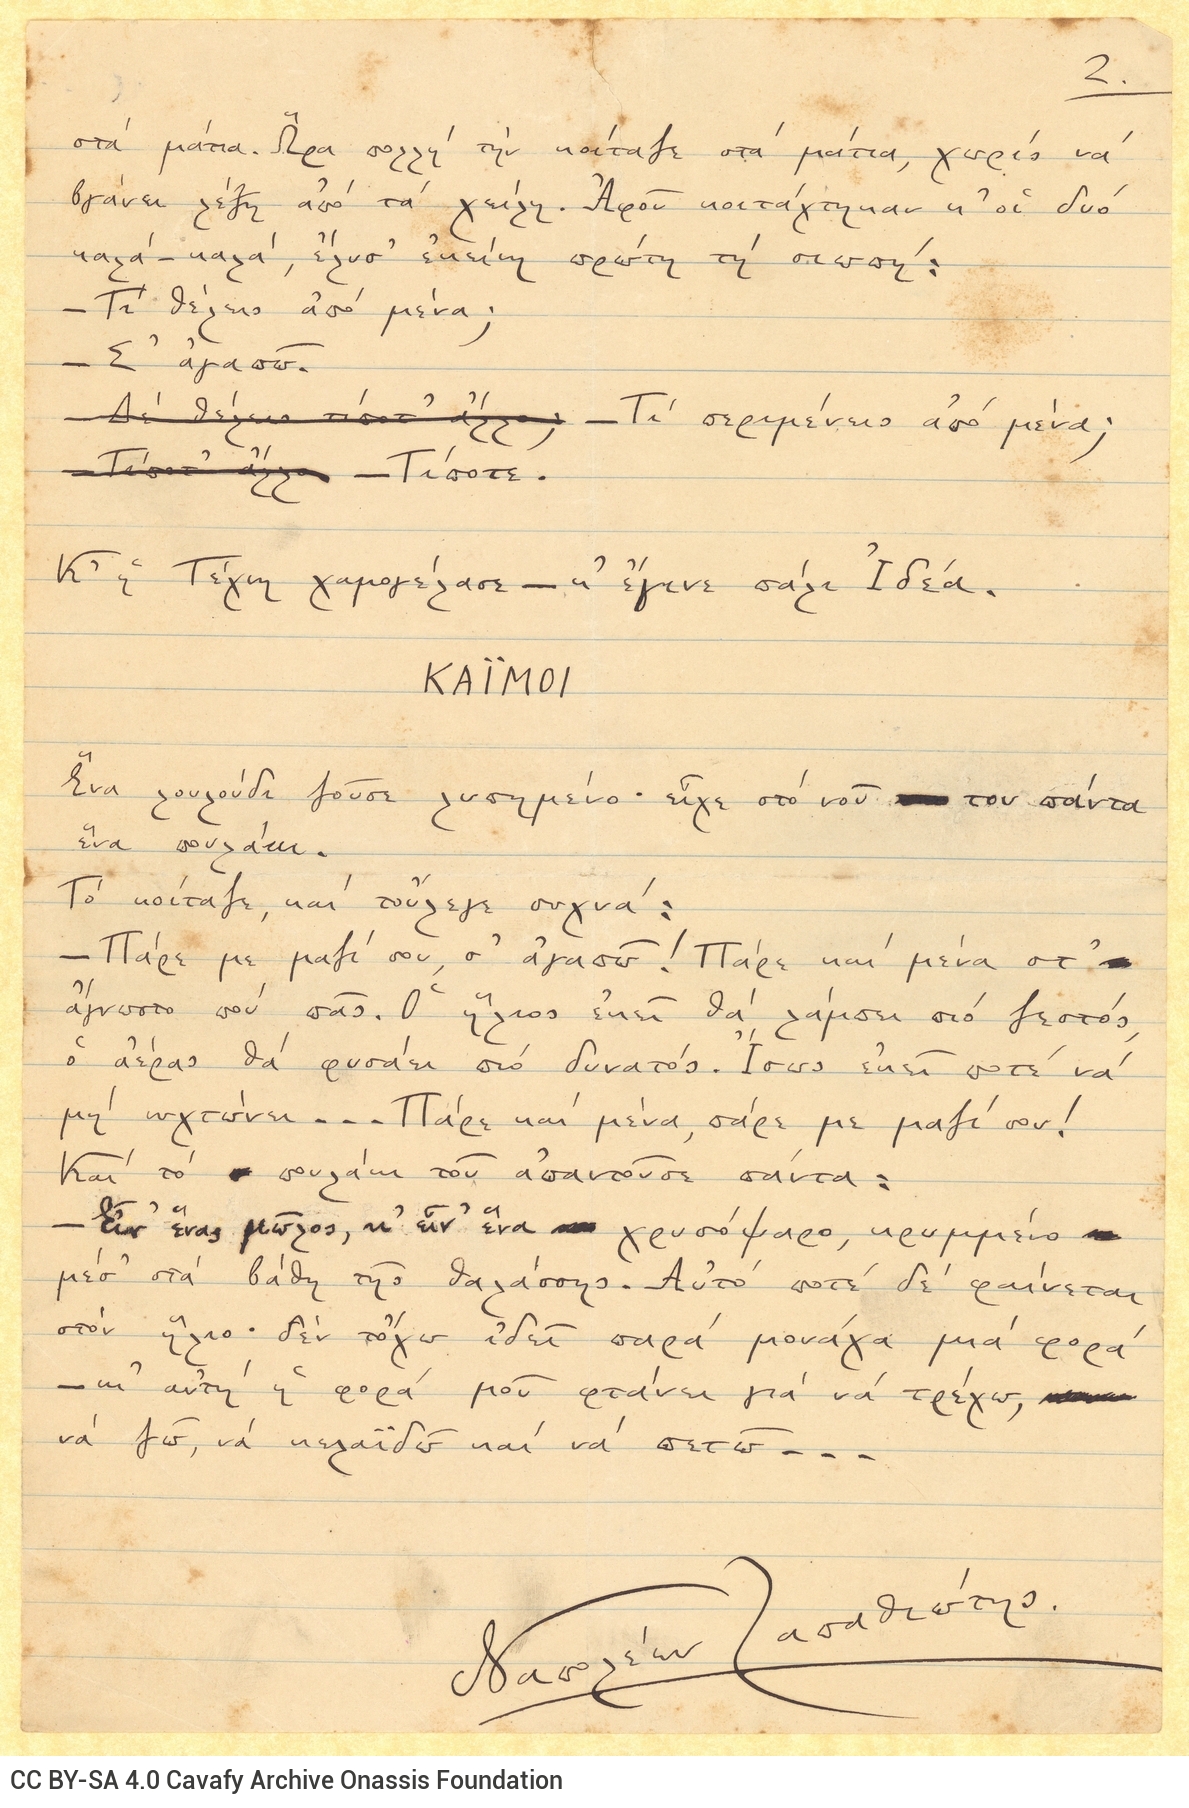 2.
στά μάτια. Ὥρα πολλή τήν κοίταξε στά μάτια, χωρίς νά
βγάνει λέξη ἀπό τά χείλη. Ἀφοῦ κοιτάχτηκαν κ' οἱ δυό
καλά-καλά, ἔλυσ' ἐκείνη πρώτη τή σιωπή:
—Τί θέλεις ἀπό μένα;
—Σ' ἀγαπῶ.
—Δέ θέλεις τίποτ' ἄλλο; —Τί περιμένεις ἀπό μένα;
—Τίποτ' ἄλλο —Τίποτε.
Κ' ἡ Τέχνη χαμογέλασε — κ' ἔγινε πάλι Ἰδέα.
ΚΑΪΜΟΙ
Ἕνα λουλούδι ζοῦσε λυπημένο· εἶχε στό νοῦ του πάντα
ἕνα πουλάκι.
Τό κοίταζε, καί τοὔλεγε συχνά:
—Πάρε με μαζί σου, σ' ἀγαπῶ! Πάρε καί μένα στ'
ἄγνωστο πού πᾶς. Ὁ ἥλιος ἐκεῖ θά λάμπει πιό ζεστός,
ὁ ἀέρας θά φυσάει πιό δυνατός. Ἴσως ἐκεῖ ποτέ νά
μή νυχτώνει... Πάρε καί μένα, πάρε με μαζί σου!
Καί τό πουλάκι τοῦ ἀπαντοῦσε πάντα:
—Εἶν' ἕνας μῶλος, κ' εἶν' ἕνα χρυσόψαρο, κρυμμένο
μέσ' στά βάθη τῆς θαλάσσης. Αὐτό ποτέ δέ φαίνεται
στόν ἥλιο· δέν τὄχω ἰδεῖ παρά μονάχα μιά φορά
—κι' αὐτή ἡ φορά μοῦ φτάνει γιά νά τρέχω,
νά ζῶ, νά κελαϊδῶ καί νά πετῶ...
Ναπολέων Λαπαθιώτης.
CC BY-SA 4.0 Cavafy Archive Onassis Foundation